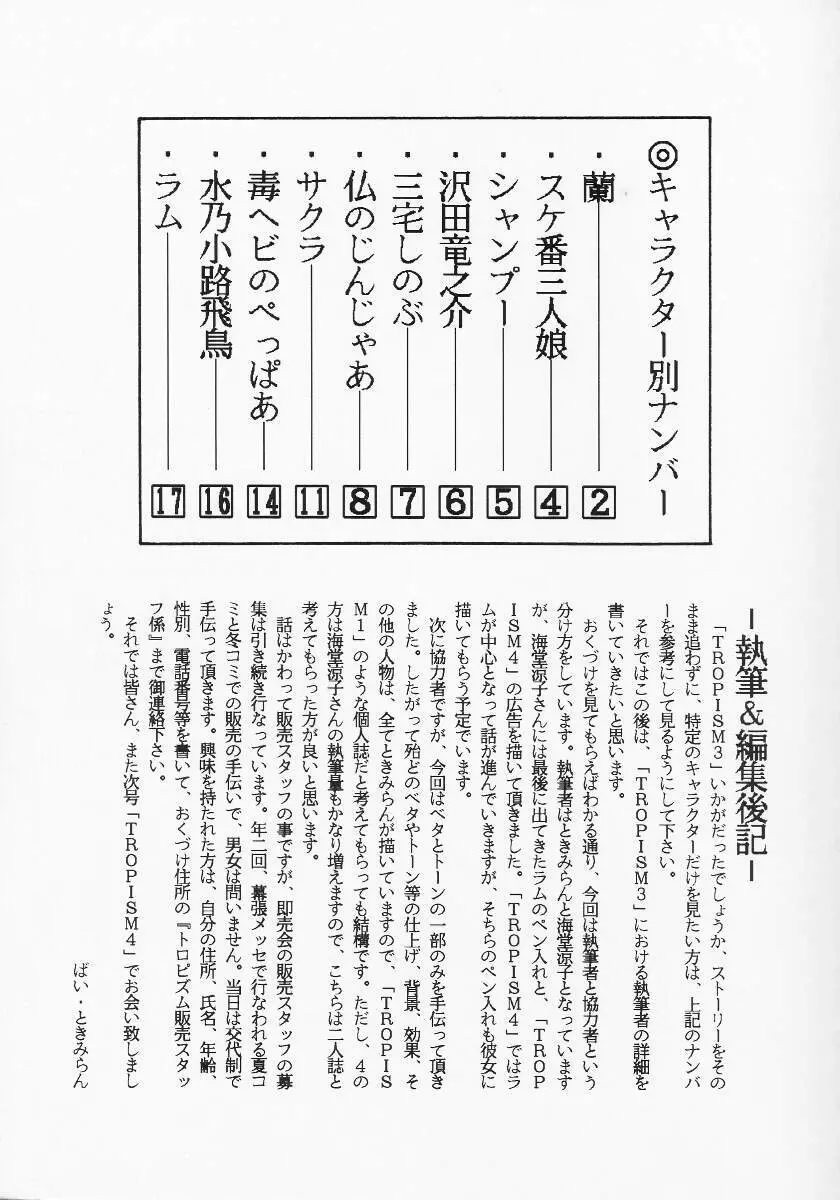 ◎キャラクター別ナンバー
・蘭 2
・スケ番三人娘 4
・シャンプー 5
・沢田竜之介 6
・三宅しのぶ 7
・仏のじんじゃあ 8
・サクラ 11
・毒ヘビのぺっぱあ 14
・水乃小路飛鳥 16
・ラム 17
－執筆＆編集後記－
「ＴＲＯＰＩＳＭ３」いかがだったでしょうか、ストーリーをその
まま追わずに、特定のキャラクターだけを見たい方は、上記のナンバ
ーを参考にして見るようにして下さい。
それではこの後は、「ＴＲＯＰＩＳＭ３」における執筆者の詳細を
書いていきたいと思います。
おくづけを見てもらえばわかる通り、今回は執筆者と協力者という
分け方をしています。執筆者はときみらんと海堂涼子となっています
が、海堂涼子さんには最後に出てきたラムのペン入れと、「ＴＲＯＰ
ＩＳＭ４」の広告を描いて頂きました。「ＴＲＯＰＩＳＭ４」ではラ
ムが中心となって話が進んでいきますが、そちらのペン入れも彼女に
描いてもらう予定でいます。
次に協力者ですが、今回はベタとトーンの一部のみを手伝って頂き
ました。したがって殆どのベタやトーン等の仕上げ、背景、効果、そ
の他の人物は、全てときみらんが描いていますので、「ＴＲＯＰＩＳ
Ｍ１」のような個人誌だと考えてもらっても結構です。ただし、４の
方は海堂涼子さんの執筆量もかなり増えますので、こちらは二人誌と
考えてもらった方が良いと思います。
話はかわって販売スタッフの事ですが、即売会の販売スタッフの募
集は引き続き行なっています。年二回、幕張メッセで行なわれる夏コ
ミと冬コミでの販売の手伝いで、男女は問いません。当日は交代制で
手伝って頂きます。興味を持たれた方は、自分の住所、氏名、年齢、
性別、電話番号等を書いて、おくづけ住所の『トロピズム販売スタッ
フ係』まで御連絡下さい。
それでは皆さん、また次号「ＴＲＯＰＩＳＭ４」でお会い致しまし
ょう。
ばい・ときみらん